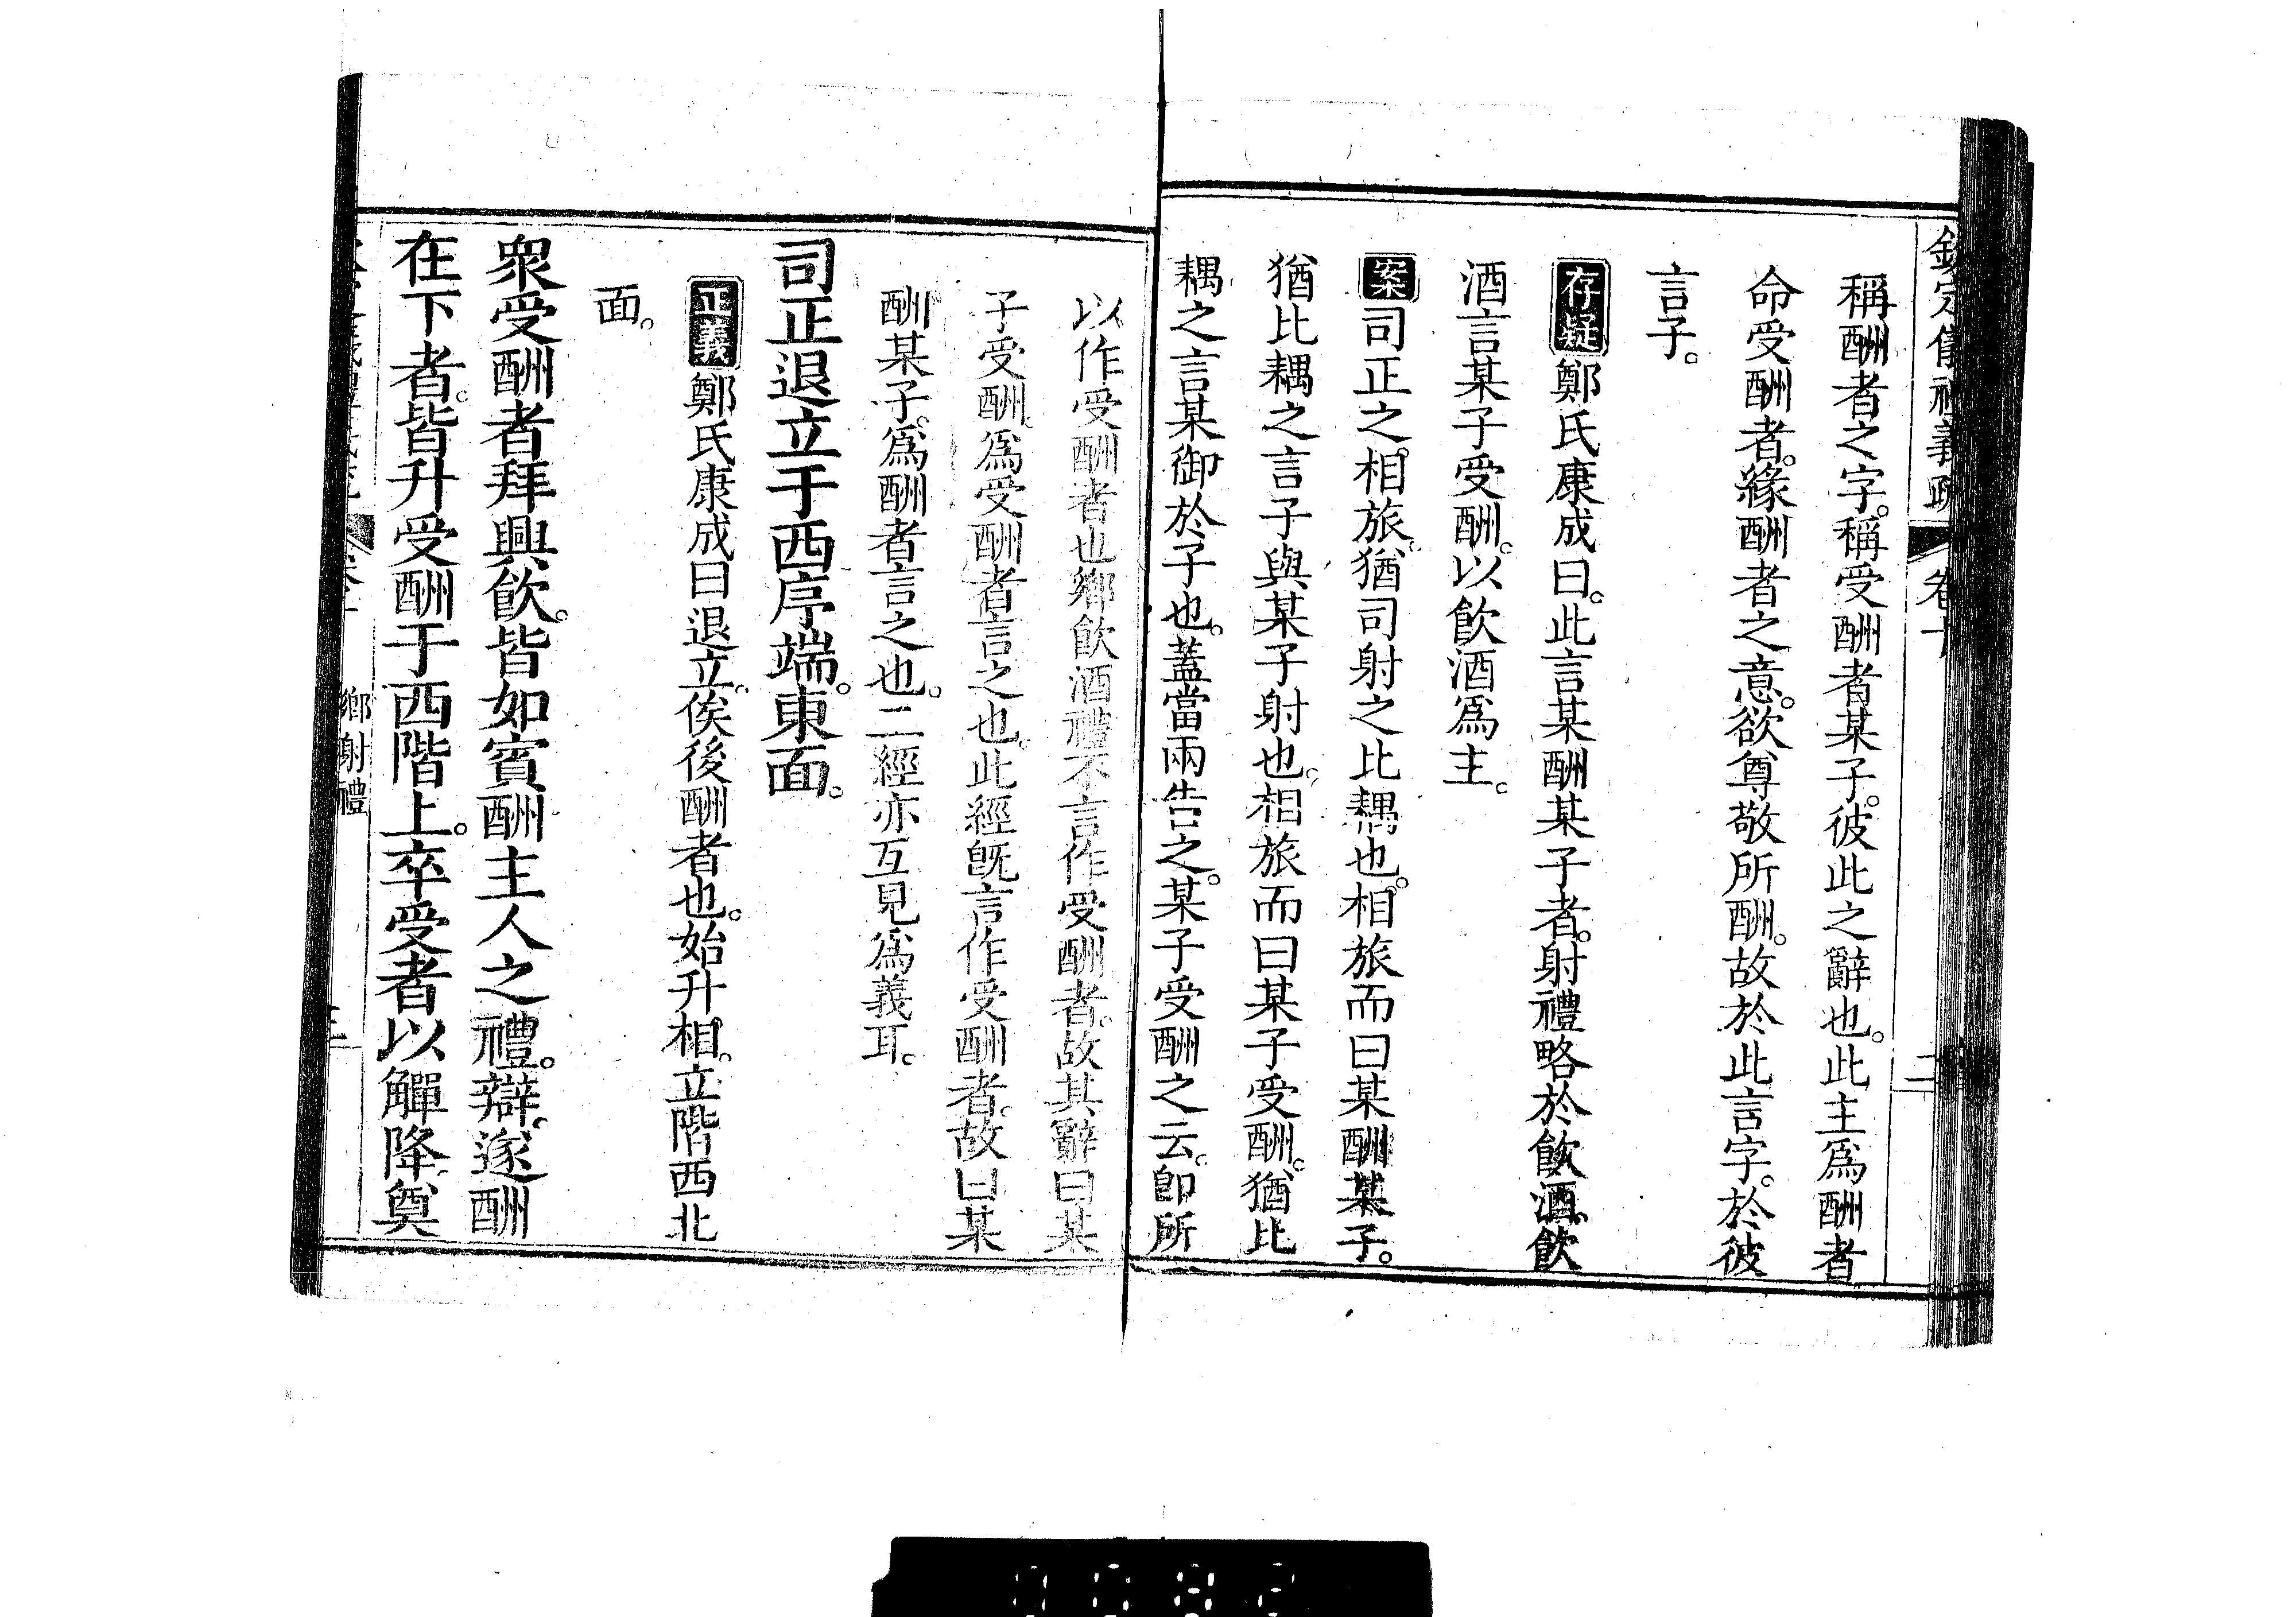 欽定儀禮義疏 卷十 二
稱酬者之字。稱受酬者某子。彼此之辭也。此主爲酬者
命受酬者。緣酬者之意。欲尊敬所酬。故於此言字。於彼
言子。
存疑鄭氏康成曰。此言某酬某子者。射禮略於飲酒。飲
酒言某子受酬。以飲酒爲主。
案司正之。相旅。猶司射之比耦也。相旅而曰某酬某子。
猶比耦之言子與某子射也。相旅而曰某子受酬。猶比
耦之言某御於子也。蓋當兩告之。某子受酬之云。卽所
以作受酬者也鄉飲酒禮不言作受酬者。故其辭曰某
子受酬。爲受酬者言之也。此經旣言作受酬者。故曰某
酬某子。爲酬者言之也。二經亦互見爲義耳。
司正退立于西序端。東面。
正義鄭氏康成曰退立。俟後酬者也。始升相。立階西北
面。
衆受酬者拜興飲。皆如賓酬主人之禮。辯。遂酬
在下者。皆升受酬于西階上。卒受者以觶降。奠
鄉射禮